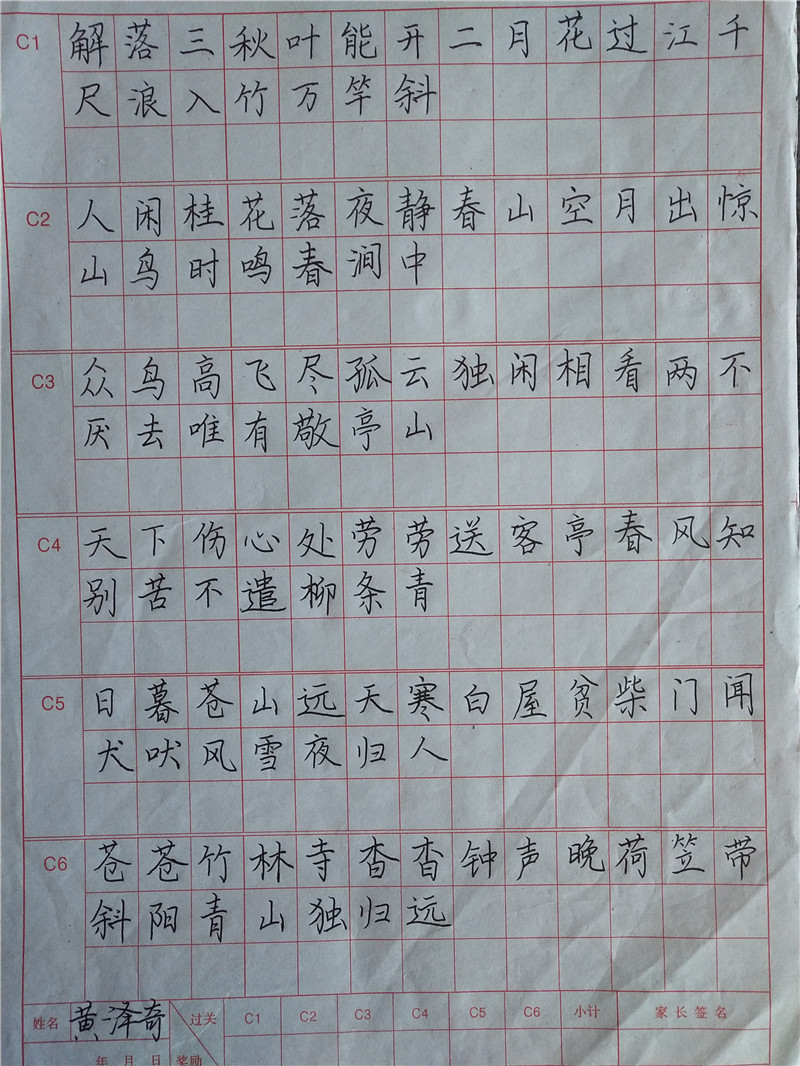 C1 解落三秋叶能开二月花过江千
尺浪入竹万竿斜
C2 人闲桂花落夜静春山空月出惊
山鸟时鸣春涧中
C3 众鸟高飞尽孤云独闲相看两不
厌去唯有敬亭山
C4 天下伤心处劳劳送客亭春风知
别苦不遣柳条青
C5 日暮苍山远天寒白屋贫柴门闻
犬吠风雪夜归人
C6 苍苍竹林寺杳杳钟声晚荷笠带
斜阳青山独归远
姓名 黄泽奇 过关 C1 C2 C3 C4 C5 C6 小计 家长签名
年 月 日 奖励